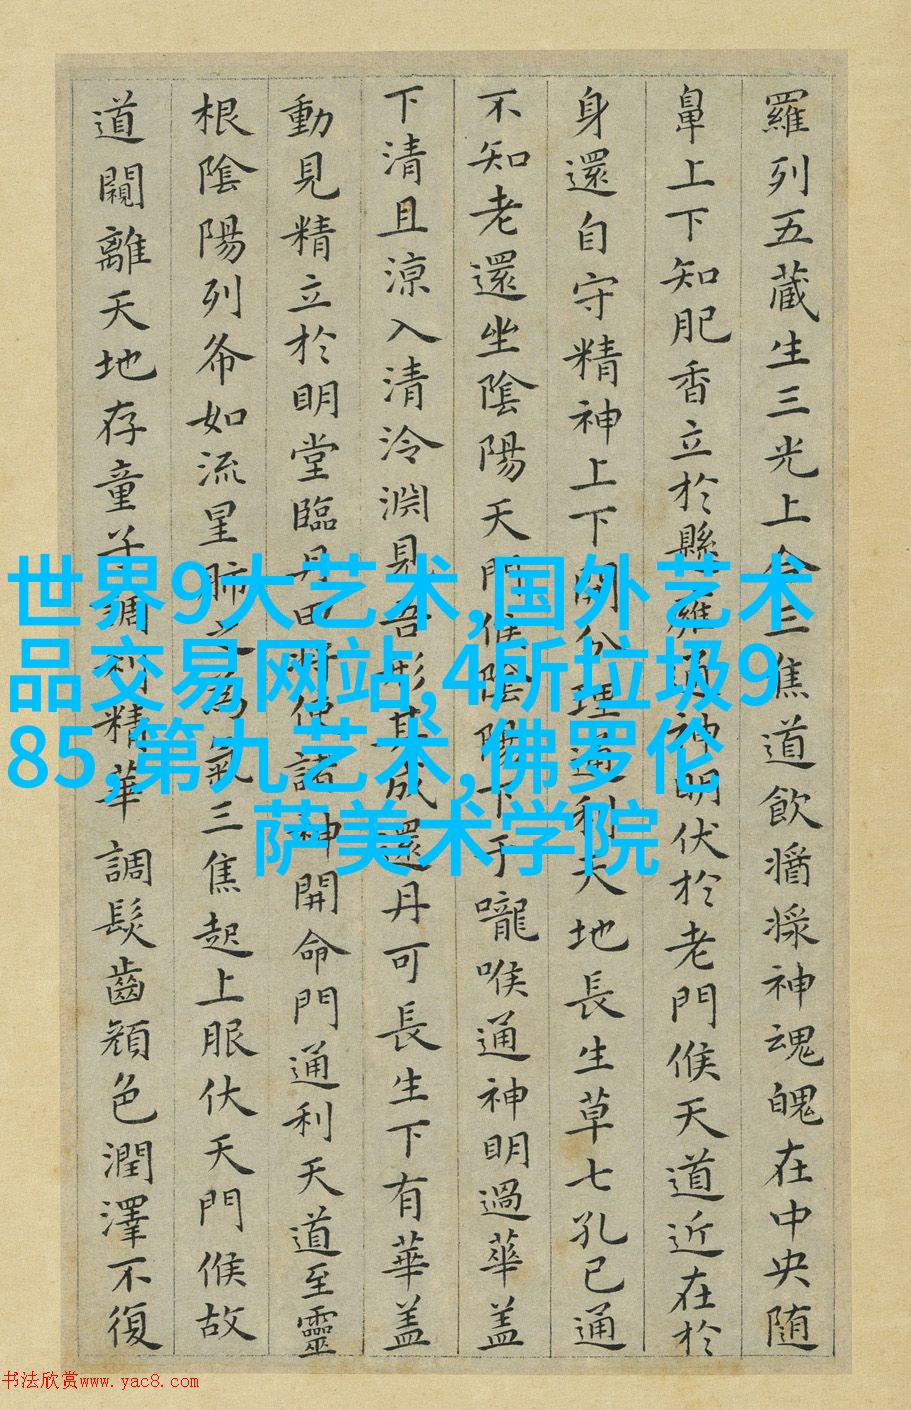 羅列五蔵生三光上合三焦道飲醬漿神魂魄在中央随
鼻上下知肥香立於懸雍通神明伏於老門候天道近在於
身還自守精神上下開分理通利天地長生草七孔已通
不知老還坐陰陽天門候陰陽下于嚨喉通神明過華盖
下清且涼入清泠淵見吾形其成還丹可長生下有華盖
動見精立於明堂臨丹田將使諸神開命門通利天道至靈
根陰陽列布如流星肺之為氣三焦起上服伏天門候故
道闚離天地存童子調利精華調髮齒顔色潤澤不復
世界9大艺术,国外艺术
品交易网站,4所垃圾9
85,第九艺术,佛罗伦
萨美术学院
书法欣赏www.yac8.com